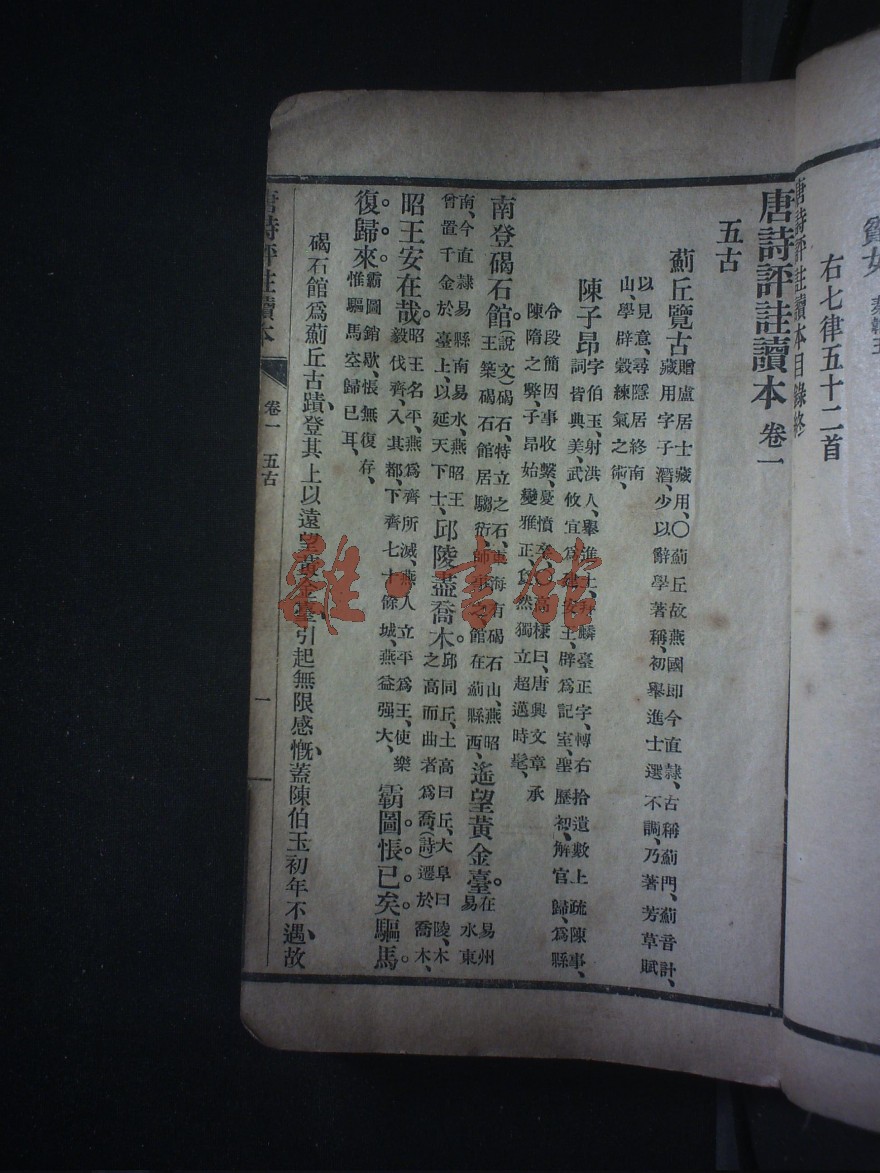 右七律五十二首
唐詩評註讀本目錄終
唐詩評註讀本 卷一
五古
薊丘覽古 贈盧居士藏用、〇薊丘故燕國卽今直隸、古稱薊門、薊音計、
藏用字子潛、少以辭學著稱、初舉進士選不調、乃著芳草賦
以見意、尋隱居終南
山、學辟穀練氣之術、
陳子昂 字伯玉、射洪人、舉進士、拜麟臺正字、轉右拾遺數上疏陳事、
詞皆典美、武攸宜為建安王、辟為記室、聖歷初、解官歸、為縣
令段簡因事收繫、憂憤卒、〇高棅曰、唐興文章承
陳隋之弊、子昂始變雅正、敻然獨立超邁時髦、
南登碣石館。(說文)碣石、特立之石、東海有碣石山、燕昭
王築碣石館居騶衍、師事之、館在薊縣西、遙望黃金臺。在易州
易水東
南、今直隸易縣南易水、燕昭王
曾置千金於臺上、以延天下士、邱陵盡喬木。邱同丘、土高曰丘、大阜曰陵、木
之高而曲者為喬、(詩)遷於喬木、
昭王安在哉。昭王名平、燕為齊所滅、燕人立平為王、使樂
毅伐齊、入其都、下齊七十餘城、燕益强大、霸圖悵已矣。驅馬
復歸來。霸圖銷歇、悵無復存、
惟驅馬空歸已耳、
碣石館為薊丘古蹟、登其上以遠望黃金臺、引起無限感慨、蓋陳伯玉初年不遇、故
唐詩評註讀本
卷一 五古
一
雜·書館